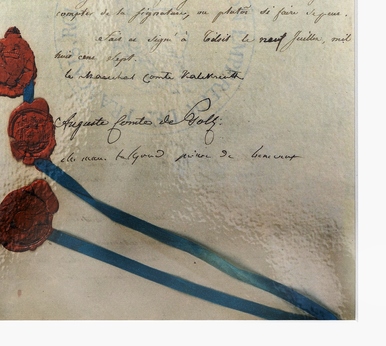 compter de la signature, ou plutôt si faire se peut.
fait et signé à Tilsit le neuf Juillet, mil
huit cent sept.
le Marechal Comte Kalckreuth
Auguste Comte de Goltz.
Talleyrand prince de Benevent